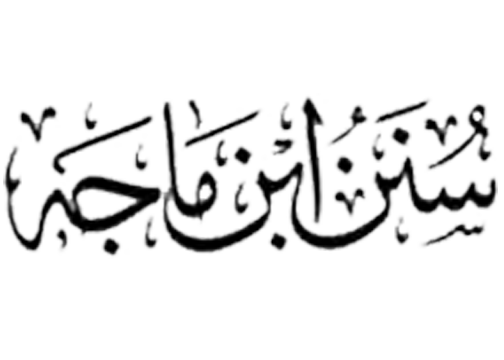 سُنَنُ ابْنِ مَاجَه